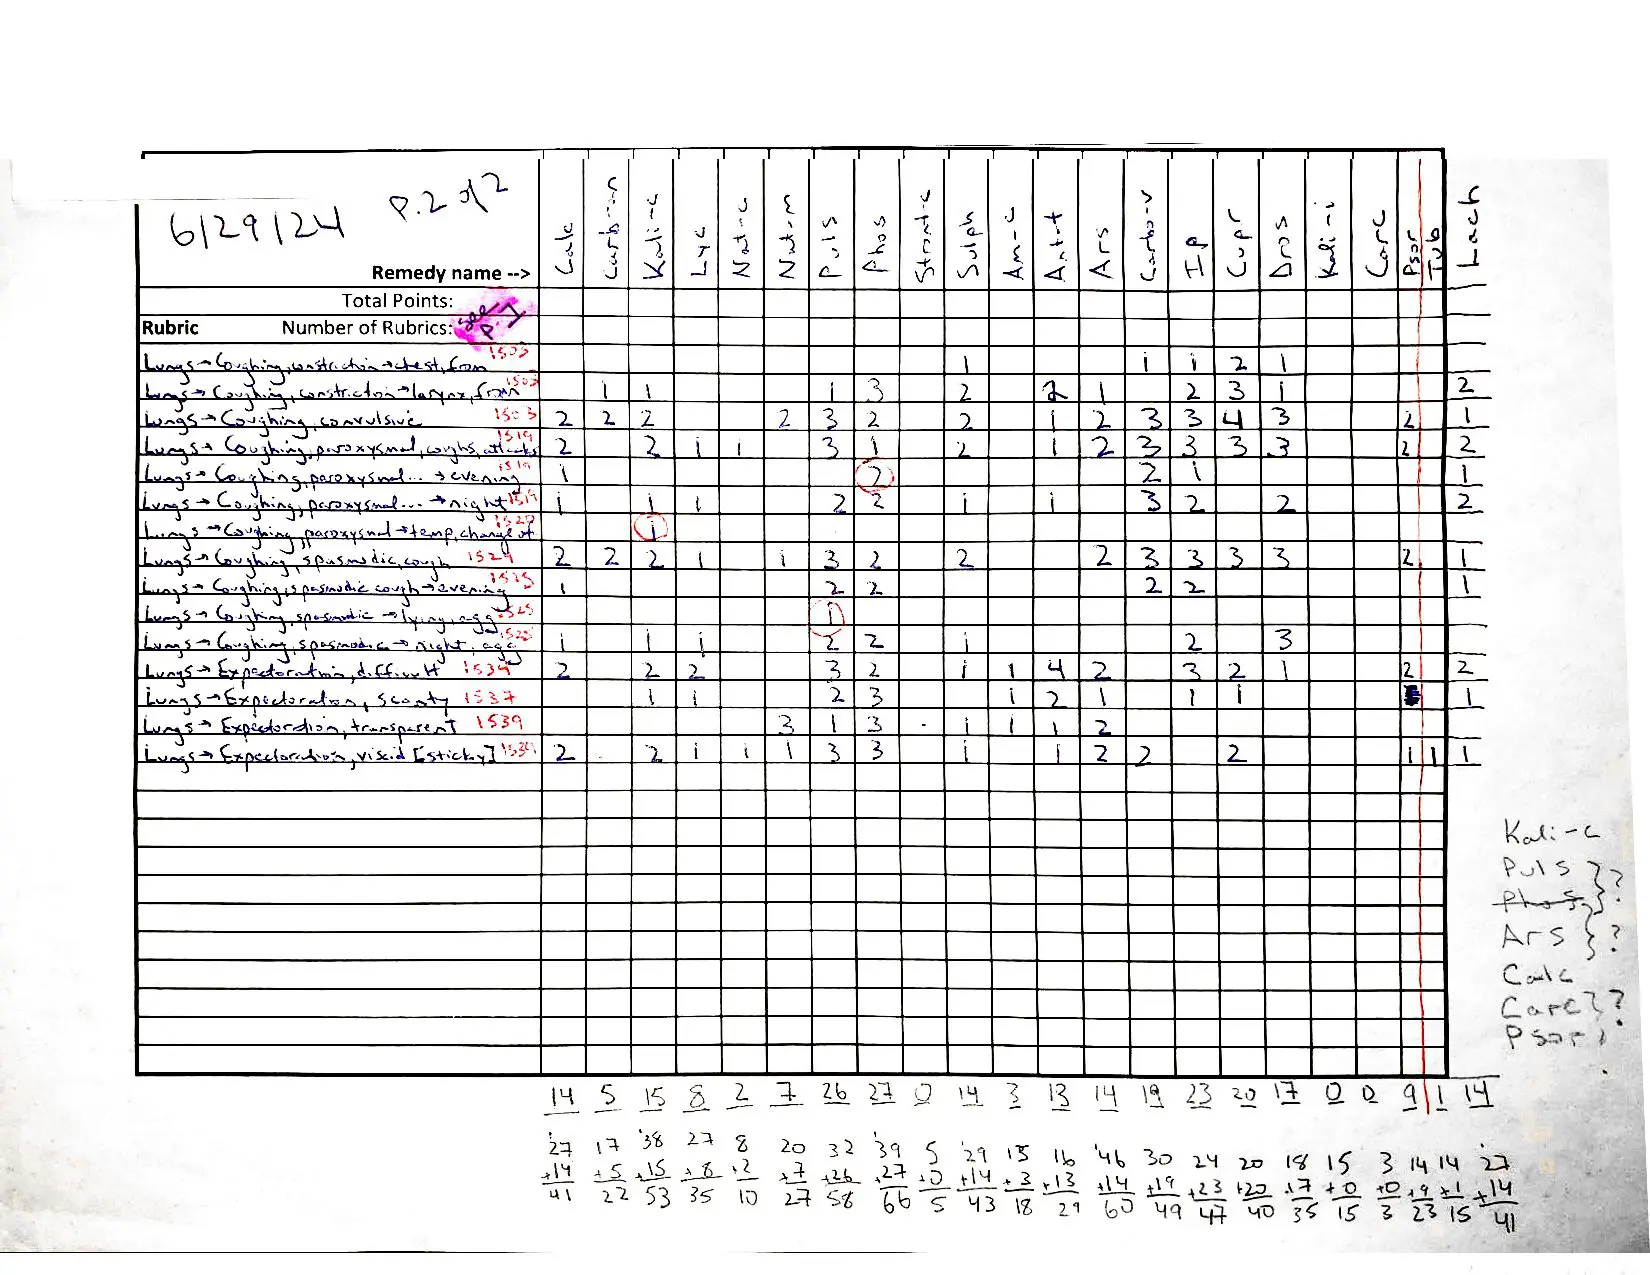 6/29/24 P.2 of 2
Remedy name --> Calc Carb-n Kali-c Lyc Nat-c Nat-m Puls Phos Stront-c Sulph Am-c Ant-t Ars Carbo-v Ip Cupr Dros Kali-i Carc Psor Tub Lach
Total Points:
Rubric Number of Rubrics: see P. 1
Lungs → Coughing, constriction → chest, from 1503 1 1 1 2 1
Lungs → Coughing, constriction → larynx, from 1503 1 1 1 3 2 2 1 2 3 1 2
Lungs → Coughing, convulsive 1503 2 2 2 2 3 2 2 1 2 3 3 4 3 2 1
Lungs → Coughing, paroxysmal, coughs, attacks 1519 2 2 1 1 3 1 2 1 2 3 3 3 3 2 2
Lungs → Coughing, paroxysmal... → evening 1519 1 2 2 1 1
Lungs → Coughing, paroxysmal... → night 1519 1 1 1 2 2 1 1 3 2 2 2
Lungs → Coughing, paroxysmal → temp, change of 1520 1
Lungs → Coughing, spasmodic, cough 1524 2 2 2 1 1 3 2 2 2 3 3 3 3 2 1
Lungs → Coughing, spasmodic cough → evening 1525 1 2 2 2 2 1
Lungs → Coughing, spasmodic → lying, agg 1525 1
Lungs → Coughing, spasmodic → night, agg 1525 1 1 1 2 2 1 2 3
Lungs → Expectoration, difficult 1534 2 2 2 3 2 1 1 4 2 3 2 1 2 2
Lungs → Expectoration, scanty 1537 1 1 2 3 1 2 1 1 1 1
Lungs → Expectoration, transparent 1539 3 1 3 1 1 1 2
Lungs → Expectoration, viscid [sticky] 1539 2 2 1 1 1 3 3 1 1 2 2 2 1 1 1
Kali-c
Puls } ?
Phos
Ars } ?
Calc
Carc } ?
Psor
14 5 15 8 2 7 26 27 0 14 3 13 14 19 23 20 17 0 0 9 1 14
27 17 38 27 8 20 32 39 5 29 15 16 46 30 24 20 18 15 3 14 14 27
+14 +5 +15 +8 +2 +7 +26 +27 +0 +14 +3 +13 +14 +19 +23 +20 +17 +0 +0 +9 +1 +14
41 22 53 35 10 27 58 66 5 43 18 29 60 49 47 40 35 15 3 23 15 41